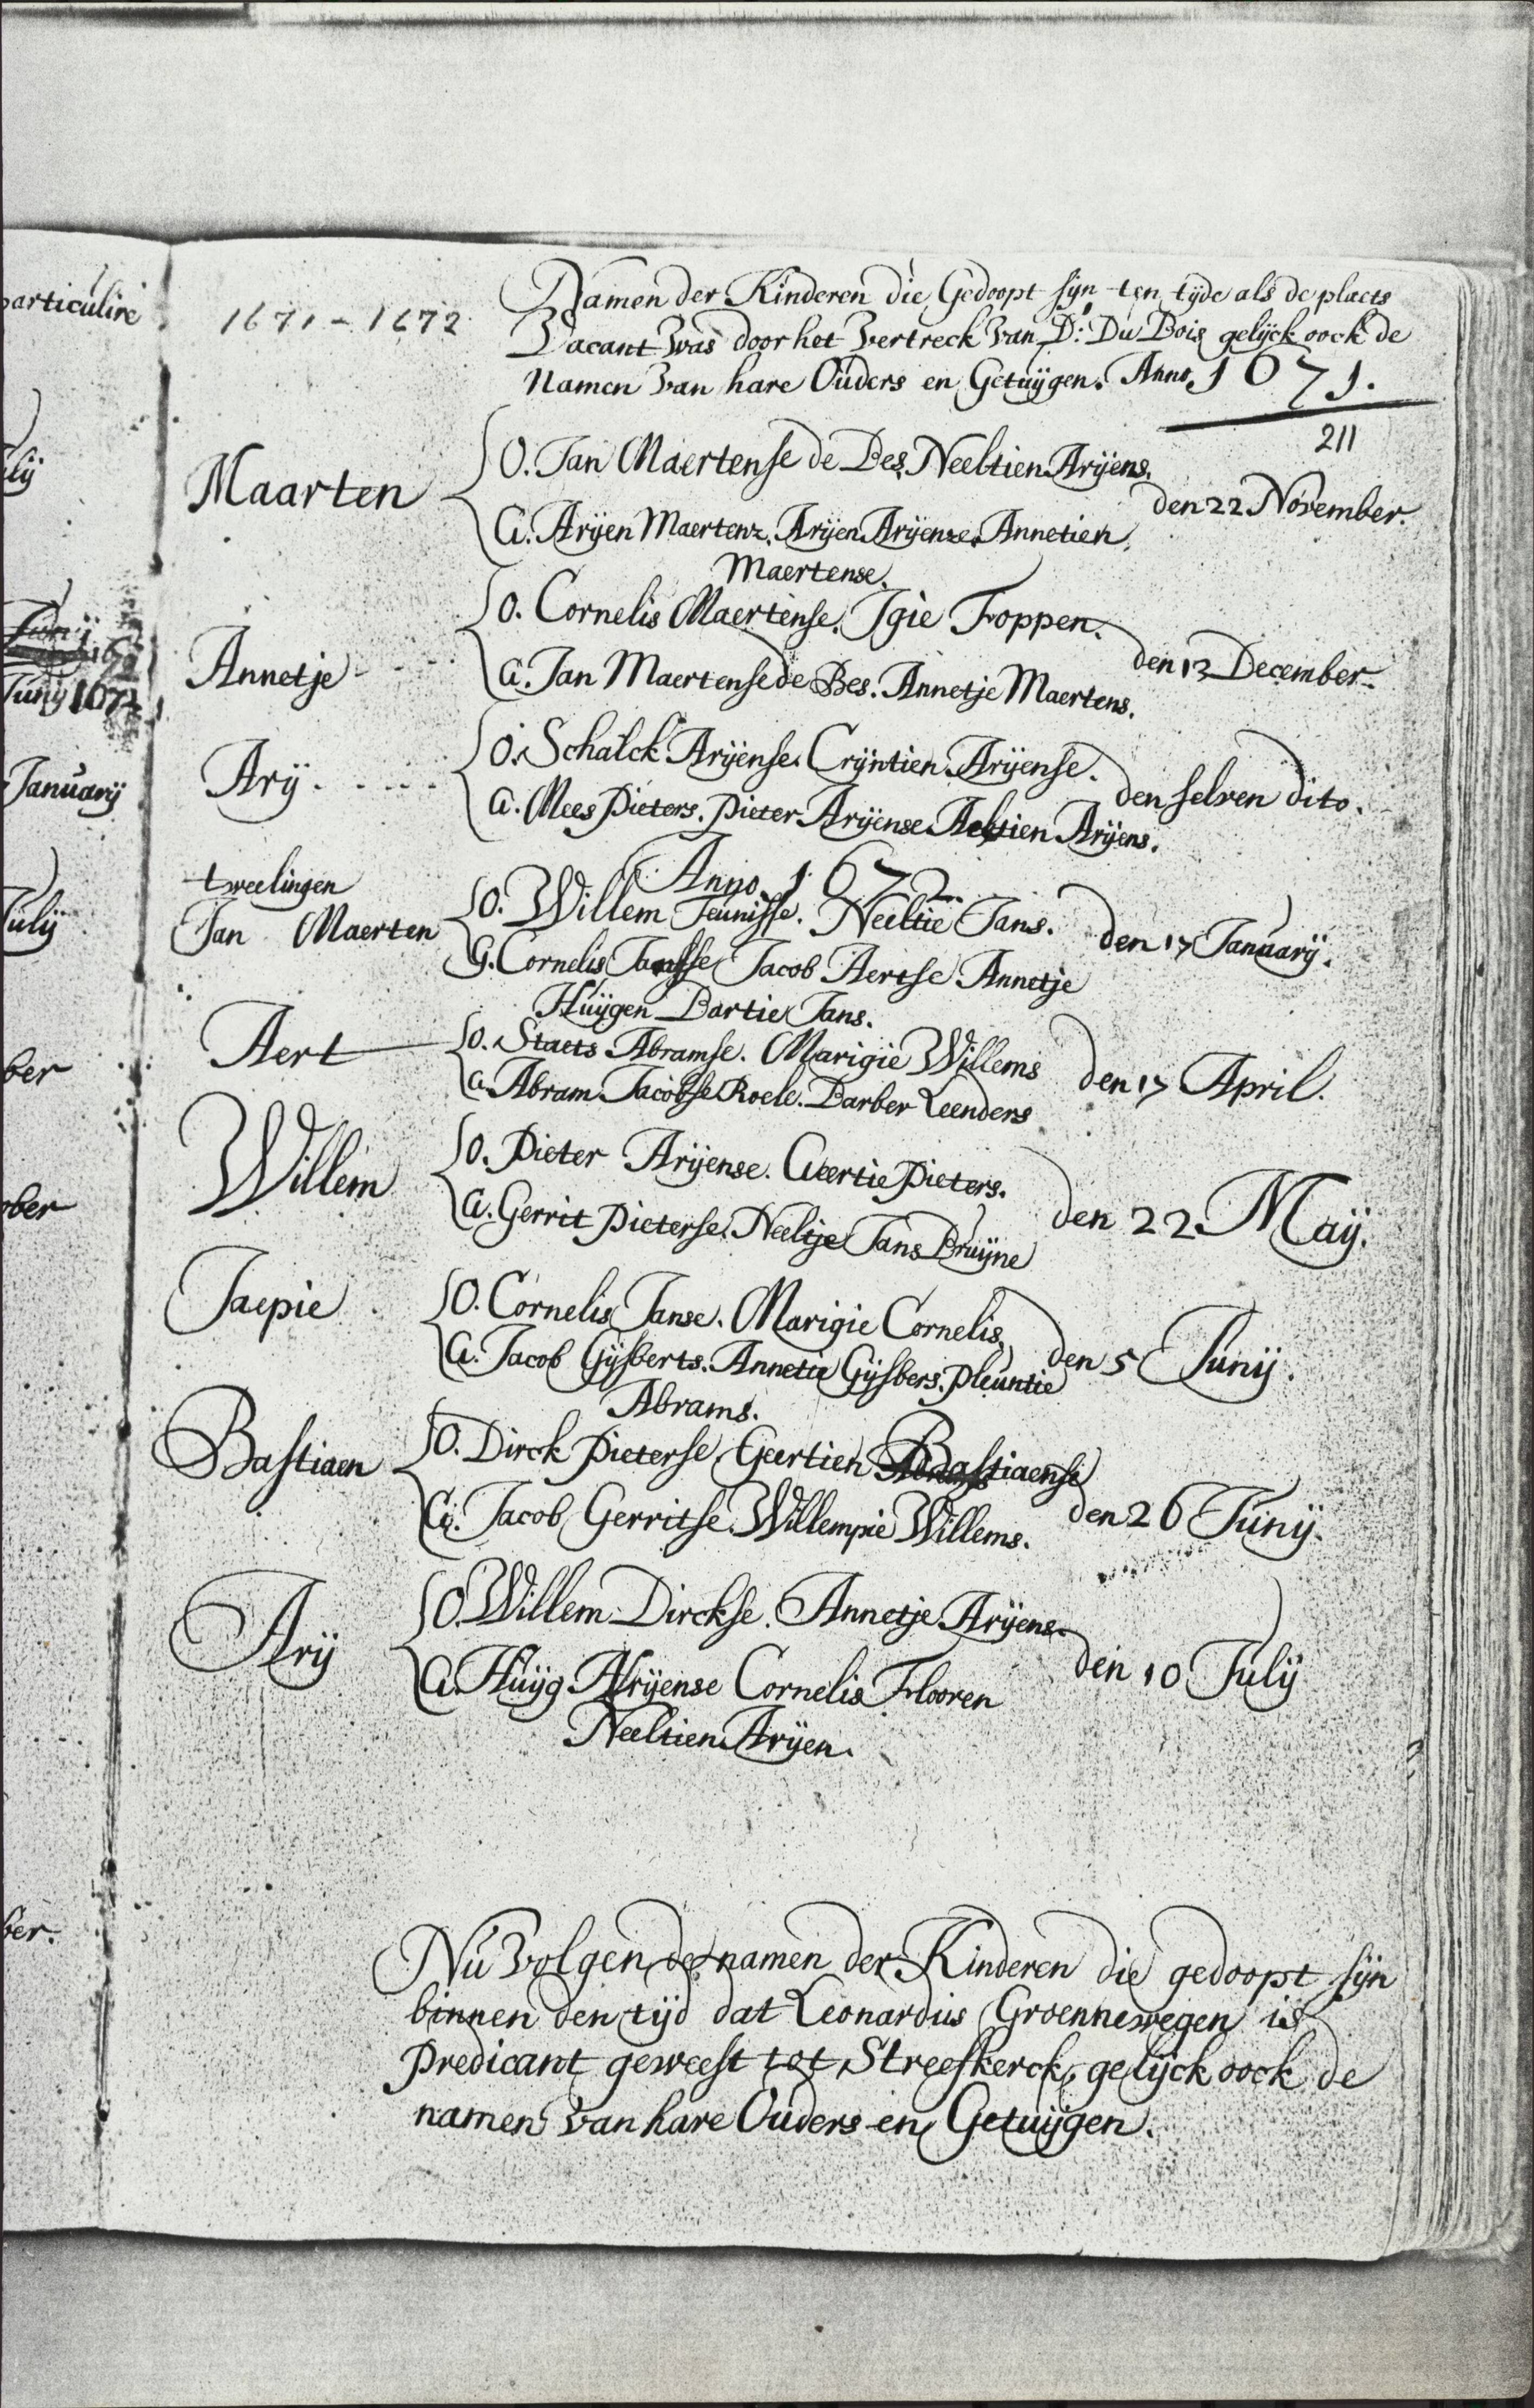 particulire
1671 - 1672
Namen der Kinderen die Gedoopt sijn ten tijde als de plaets
Vacant was door het Vertreck van D: Du Bois gelijck oock de
Namen van hare Ouders en Getuijgen. Anno 1671.
211
Maarten
O. Jan Maertense de Bes. Neeltien Arijens.
G. Arijen Maertenz. Arijen Arijense. Annetien
Maertense.
den 22 November.
Annetje
O. Cornelis Maertense. Igie Foppen.
G. Jan Maertense de Bes. Annetje Maertens.
den 13 December
Arij
O. Schalck Arijense. Crijntien Arijense.
G. Mees Pieters. Pieter Arijense. Aeltien Arijens.
den selven dito.
Anno 1672
tweelingen
Jan Maerten
O. Willem Teunisse. Neeltie Jans.
G. Cornelis Jansse Jacob Aertse Annetje
Huijgen Bartie Jans.
den 17 Januarij.
Aert
O. Staets Abramse. Marigie Willems
G. Abram Jacobse Roele. Barber Leenders
den 17 April.
Willem
O. Pieter Arijense. Geertie Pieters.
G. Gerrit Pieterse. Neeltje Jans Bruijne
den 22 Maij.
Jaepie
O. Cornelis Janse. Marigie Cornelis.
G. Jacob Gijsberts. Annetie Gijsbers. Pleuntie
Abrams.
den 5 Junij.
Bastiaen
O. Dirck Pieterse Geertien Bastiaense
G. Jacob Gerritse. Willempie Willems.
den 26 Junij.
Arij
O. Willem Dirckse. Annetje Arijens.
G. Huijg Arijense Cornelis Flooren
Neeltien Arijen.
den 10 Julij
Nu volgen de namen der Kinderen die gedoopt sijn
binnen den tijd dat Leonardus Groennewegen is
predicant geweest tot Streefkerck, gelijck oock de
namen van hare Ouders en Getuijgen.
Junij 1671
Januarij
Julij
ber
ober
ber.